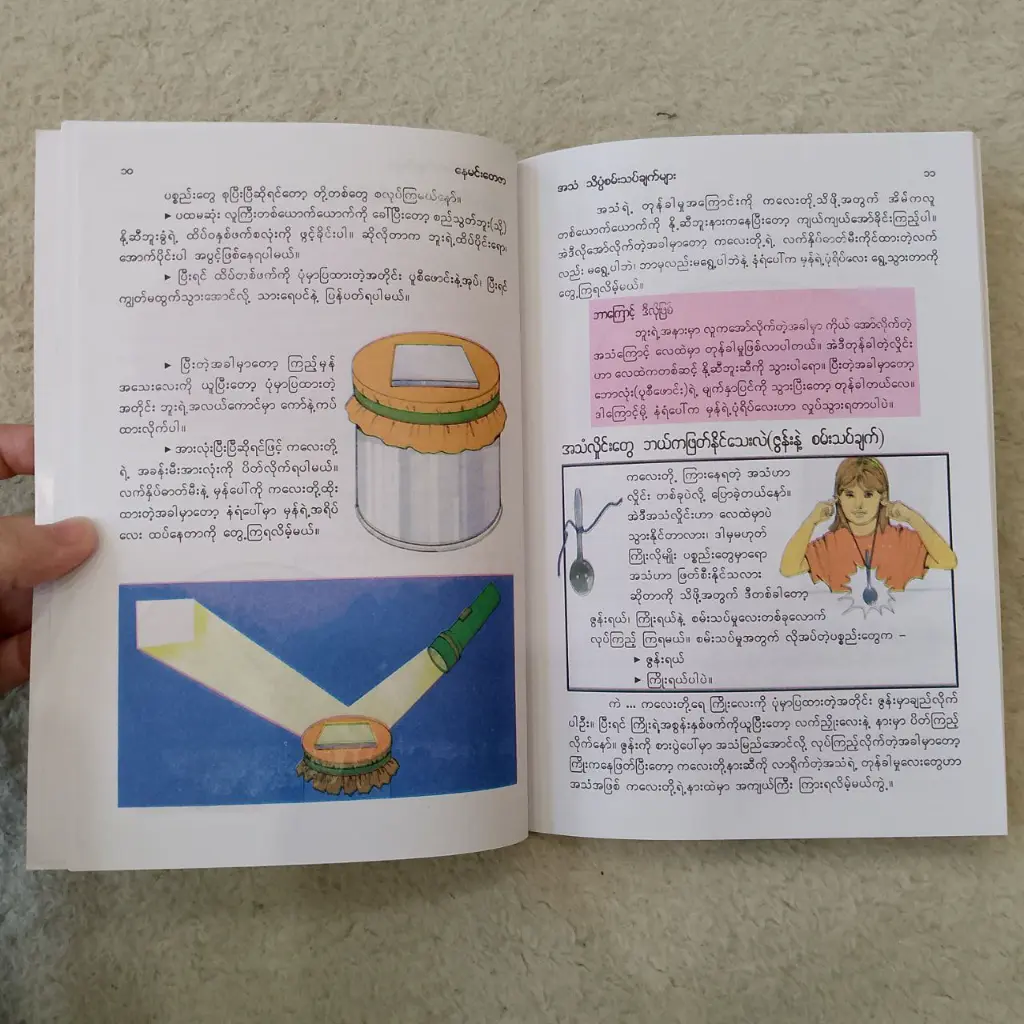 ၁၀
နေမင်းတေဇာ
ပစ္စည်းတွေ စုပြီးပြီဆိုရင်တော့ တို့တစ်တွေ စလုပ်ကြမယ်နော်။
▸ ပထမဆုံး လူကြီးတစ်ယောက်ယောက်ကို ခေါ်ပြီးတော့ စည်သွတ်ဘူး(သို့)
နို့ဆီဘူးခွံရဲ့ ထိပ်ဝနှစ်ဖက်စလုံးကို ဖွင့်ခိုင်းပါ။ ဆိုလိုတာက ဘူးရဲ့ထိပ်ပိုင်းရော၊
အောက်ပိုင်းပါ အပွင့်ဖြစ်နေရပါမယ်။
▸ ပြီးရင် ထိပ်တစ်ဖက်ကို ပုံမှာပြထားတဲ့အတိုင်း ပူစီဖောင်းနဲ့အုပ်၊ ပြီးရင်
ကျွတ်မထွက်သွားအောင်လို့ သားရေပင်နဲ့ ပြန်ပတ်ရပါမယ်။
▸ ပြီးတဲ့အခါမှာတော့ ကြည့်မှန်
အသေးလေးကို ယူပြီးတော့ ပုံမှာပြထားတဲ့
အတိုင်း ဘူးရဲ့အလယ်ကောင်မှာ ကော်နဲ့ကပ်
ထားလိုက်ပါ။
▸ အားလုံးပြီးပြီဆိုရင်ဖြင့် ကလေးတို့
ရဲ့ အခန်းမီးအားလုံးကို ပိတ်လိုက်ရပါမယ်။
လက်နှိပ်ဓာတ်မီးနဲ့ မှန်ပေါ်ကို ကလေးတို့ထိုး
ထားတဲ့အခါမှာတော့ နံရံပေါ်မှာ မှန်ရဲ့အရိပ်
လေး ထပ်နေတာကို တွေ့ကြရလိမ့်မယ်။
အသံ သိပ္ပံစမ်းသပ်ချက်များ
၁၁
အသံရဲ့ တုန်ခါမှုအကြောင်းကို ကလေးတို့သိဖို့အတွက် အိမ်ကလူ
တစ်ယောက်ယောက်ကို နို့ဆီဘူးနားကနေပြီးတော့ ကျယ်ကျယ်အော်ခိုင်းကြည့်ပါ။
အဲဒီလိုအော်လိုက်တဲ့အခါမှာတော့ ကလေးတို့ရဲ့ လက်နှိပ်ဓာတ်မီးကိုင်ထားတဲ့လက်
လည်း မရွေ့ပါဘဲ၊ ဘာမှလည်းမရွေ့ပါဘဲနဲ့ နံရံပေါ်က မှန်ရဲ့ပုံရိပ်လေး ရွေ့သွားတာကို
တွေ့ကြရလိမ့်မယ်။
ဘာကြောင့် ဒီလိုဖြစ်
ဘူးရဲ့အနားမှာ လူကအော်လိုက်တဲ့အခါမှာ ကိုယ် အော်လိုက်တဲ့
အသံကြောင့် လေထဲမှာ တုန်ခါမှုဖြစ်လာပါတယ်။ အဲဒီတုန်ခါတဲ့လှိုင်း
ဟာ လေထဲကတစ်ဆင့် နို့ဆီဘူးဆီကို သွားပါရော။ ပြီးတဲ့အခါမှာတော့
ဘောလုံး(ပူစီဖောင်း)ရဲ့ မျက်နှာပြင်ကို သွားပြီးတော့ တုန်ခါတယ်လေ။
ဒါကြောင့်မို့ နံရံပေါ်က မှန်ရဲ့ပုံရိပ်လေးဟာ လှုပ်သွားရတာပါပဲ။
အသံလှိုင်းတွေ ဘယ်ကဖြတ်နိုင်သေးလဲ(ဇွန်းနဲ့ စမ်းသပ်ချက်)
ကလေးတို့ ကြားနေရတဲ့ အသံဟာ
လှိုင်း တစ်ခုပဲလို့ ပြောခဲ့တယ်နော်။
အဲဒီအသံလှိုင်းဟာ လေထဲမှာပဲ
သွားနိုင်တာလား၊ ဒါမှမဟုတ်
ကြိုးလိုမျိုး ပစ္စည်းတွေမှာရော
အသံဟာ ဖြတ်စီးနိုင်သလား
ဆိုတာကို သိဖို့အတွက် ဒီတစ်ခါတော့
ဇွန်းရယ်၊ ကြိုးရယ်နဲ့ စမ်းသပ်မှုလေးတစ်ခုလောက်
လုပ်ကြည့် ကြရမယ်။ စမ်းသပ်မှုအတွက် လိုအပ်တဲ့ပစ္စည်းတွေက –
▸ ဇွန်းရယ်
▸ ကြိုးရယ်ပါပဲ။
ကဲ ... ကလေးတို့ရေ ကြိုးလေးကို ပုံမှာပြထားတဲ့အတိုင်း ဇွန်းမှာချည်လိုက်
ပါဦး။ ပြီးရင် ကြိုးရဲ့အစွန်းနှစ်ဖက်ကိုယူပြီးတော့ လက်ညှိုးလေးနဲ့ နားမှာ ပိတ်ကြည့်
လိုက်နော်။ ဇွန်းကို စားပွဲပေါ်မှာ အသံမြည်အောင်လို့ လုပ်ကြည့်လိုက်တဲ့အခါမှာတော့
ကြိုးကနေဖြတ်ပြီးတော့ ကလေးတို့နားဆီကို လာရိုက်တဲ့အသံရဲ့ တုန်ခါမှုလေးတွေဟာ
အသံအဖြစ် ကလေးတို့ရဲ့နားထဲမှာ အကျယ်ကြီး ကြားရလိမ့်မယ်ကွဲ့။